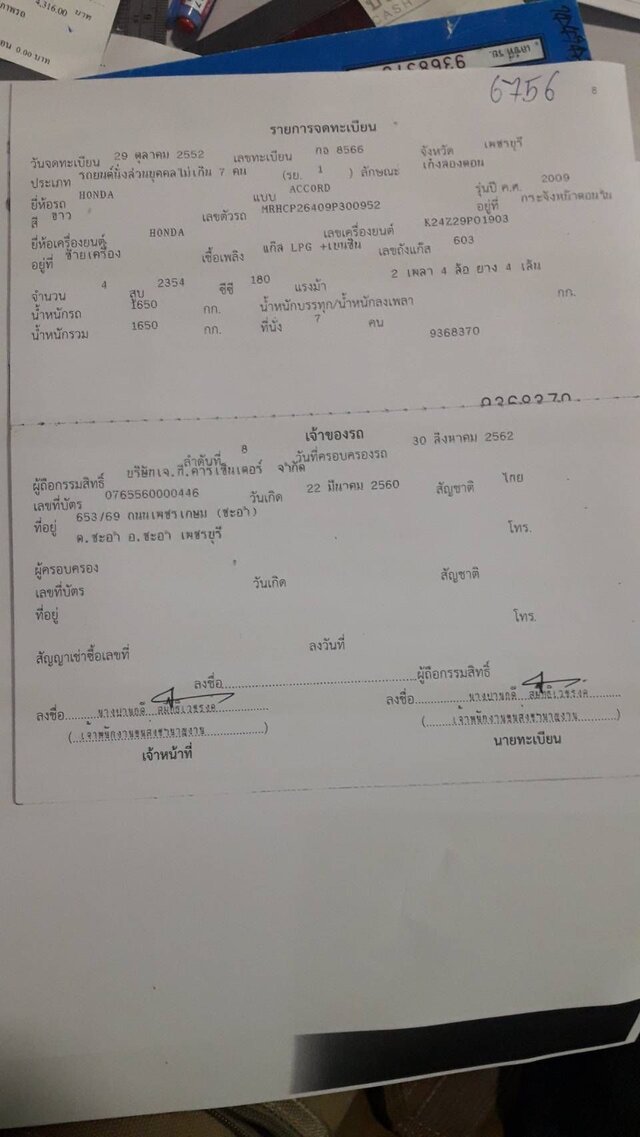 4,316.00 บาท
0.00 บาท
เลขที่ รย.
9368370
6756
8
รายการจดทะเบียน
วันจดทะเบียน 29 ตุลาคม 2552 เลขทะเบียน กอ 8566 จังหวัด เพชรบุรี
ประเภท รถยนต์นั่งส่วนบุคคลไม่เกิน 7 คน (รย. 1 ) ลักษณะ เก๋งสองตอน
ยี่ห้อรถ HONDA แบบ ACCORD รุ่นปี ค.ศ. 2009
สี ขาว เลขตัวรถ MRHCP26409P300952 อยู่ที่ กระจังหน้าตอนใน
ยี่ห้อเครื่องยนต์ HONDA เลขเครื่องยนต์ K24Z29P01903
อยู่ที่ ซ้ายเครื่อง เชื้อเพลิง แก๊ส LPG +เบนซิน เลขถังแก๊ส 603
จำนวน 4 สูบ 2354 ซีซี 180 แรงม้า 2 เพลา 4 ล้อ ยาง 4 เส้น
น้ำหนักรถ 1650 กก. น้ำหนักบรรทุก/น้ำหนักลงเพลา กก.
น้ำหนักรวม 1650 กก. ที่นั่ง 7 คน 9368370
9368370
เจ้าของรถ
ลำดับที่ 8 วันที่ครอบครองรถ 30 สิงหาคม 2562
ผู้ถือกรรมสิทธิ์ บริษัทเจ.ที.คาร์เซ็นเตอร์ จำกัด
เลขที่บัตร 0765560000446 วันเกิด 22 มีนาคม 2560 สัญชาติ ไทย
ที่อยู่ 653/69 ถนนเพชรเกษม (ชะอำ) โทร.
ต.ชะอำ อ.ชะอำ เพชรบุรี
ผู้ครอบครอง
เลขที่บัตร วันเกิด สัญชาติ
ที่อยู่ โทร.
สัญญาเช่าซื้อเลขที่ ลงวันที่
ลงชื่อ ผู้ถือกรรมสิทธิ์
ลงชื่อ ลงชื่อ
(เจ้าพนักงานขนส่งชำนาญงาน) (เจ้าพนักงานขนส่งชำนาญงาน)
เจ้าหน้าที่ นายทะเบียน